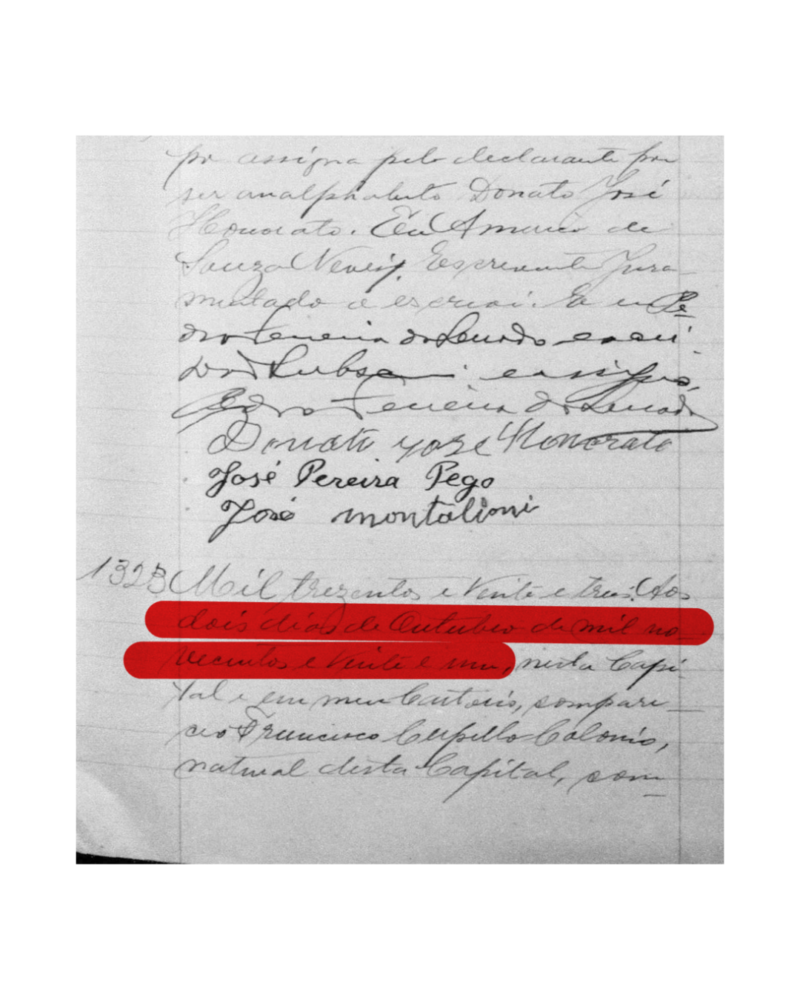 po assigna pelo declarante por
ser analphabeto Donato José
Honorato. Eu Amaro de
Souza Neves, Escrevente Jura
mentado o escrevi. E eu Pe
dro Ferreira do Senado escri
vão Subscrevi e assigno,
Pedro Ferreira do Senado
Donato José Honorato
José Pereira Pego
José montalioni
1323 Mil trezentos e Vinte e tres. Aos
dois dias de Outubro de mil no
vecentos e Vinte e um, nesta Capi
tal e em meu Cartorio, compare
ceo Francisco Cupello Colonio,
natural desta Capital, com